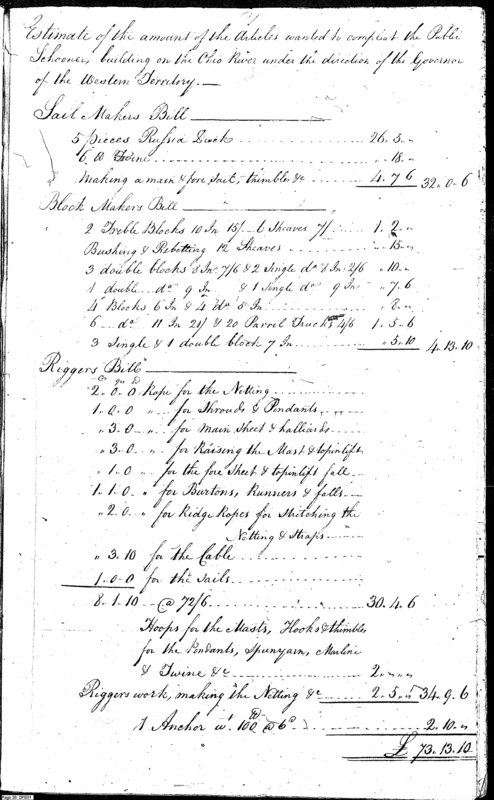 Estimate of the amount of the Articles wanted to compleat the Public
Schooner, building on the Ohio River under the direction of the Governor
of the Western Territory. —
Sail Makers Bill
5 pieces Russia Duck 26. 5. „
6 lb Twine „ 18. „
Making a main & fore sail, thimbles &c 4. 7 6 32. 0. 6
Block Makers Bill
2 Treble Blocks 10 In 15/ — 6 Sheaves 7/ 1. 2. „
Bushing & Rebolting 12 Sheaves „ 15. „
3 double blocks 8 In 7/6 & 2 Single do 8 In 2/6 „ 10. „
1 double do 9 In & 1 Single do 9 In „ 7. 6
4 Blocks 6 In & 4 do 5 In „ 8. „
6 do 11 In 21/ & 20 Parrel Trucks 4/6 1. 5. 6
3 Single & 1 double block 7 In „ 5. 10 4. 13. 10
Riggers Bill
2. 0. 0 Rope for the Netting
1. 0. 0 „ for Shrouds & Pendants
„ 3. 0 „ for Main Sheet & halliards
„ 3. 0 „ for Raising the Mast & topinlift
„ 1. 0 „ for the fore Sheet & topinlift fall
1. 1. 0 „ for Burtons, Runners & falls
„ 2. 0 „ for Ridge Ropes for Stretching the
Netting & Straps
„ 3. 10 for the Cable
1. 0. 0 for the Sails
8. 1. 10 @ 72/6 30. 4. 6
Hoops for the Masts, Hooks & thimbles
for the Pendants, Spunyarn, Marline
& Twine &c 2. „ „
Riggers work, making the Netting &c 2. 5. „ 34. 9. 6
1 Anchor wt. 100 lb @ 6d 2. 10. „
£ 73. 13. 10